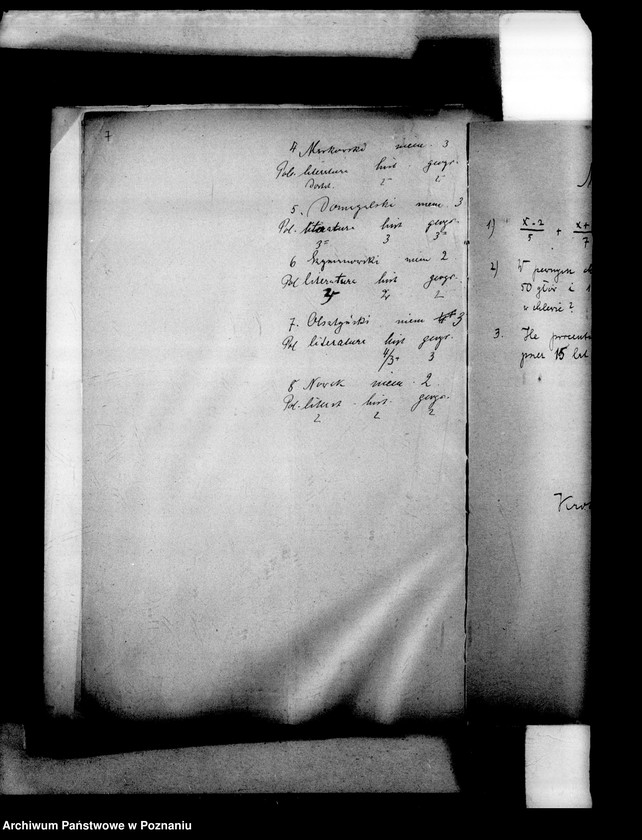 7
4 Markowski niem. 3
Pol. literatura hist geogr.
Dost. 2 2
5. Domagalski niem. 3
Pol. literatura hist geogr.
3= 3 3=
6 Szymanowski niem 2
Pol literatura hist geogr.
2 2 2
7. Olsztyński niem 3
Pol literatura hist geogr.
4/3- 3
8 Nowak niem. 2
Pol. literat. hist. geogr.
2 2 2
1) x-2/5 + x+/7
2) W pewnym
50 głów i
w chlewie?
3. Ile procent
przez 15 lat
Archiwum Państwowe w Poznaniu